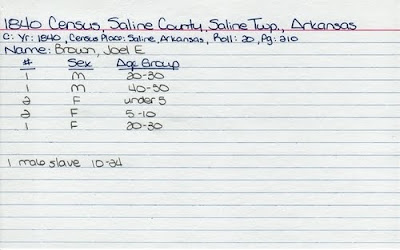 1840 Census, Saline County, Saline Twp., Arkansas
C: Yr: 1840, Census Place: Saline, Arkansas, Roll: 20, Pg: 210
Name: Brown, Joel E
# Sex Age Group
1 M 20-30
1 M 40-50
2 F under 5
2 F 5-10
1 F 20-30
1 male slave 10-24